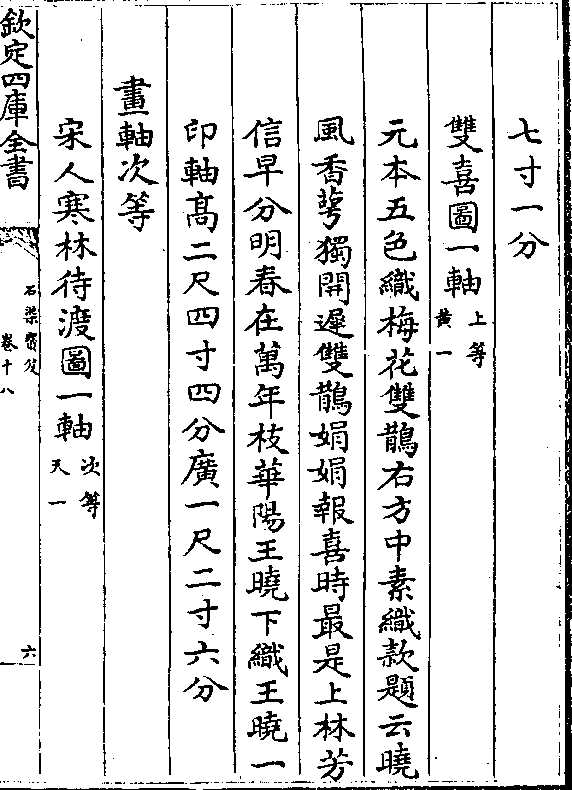 七寸一分
雙喜圖一軸
上等
黃一
元本五色織梅花雙鵲右方中素織款題云曉
風香萼獨開遲雙鵲娟娟報喜時最是上林芳
信早分明春在萬年枝華陽王曉下織王曉一
印軸髙二尺四寸四分廣一尺二寸六分
畫軸次等
宋人寒林待渡圖一軸
次等
天一
欽定四庫全書
石渠寶笈
卷十八
六